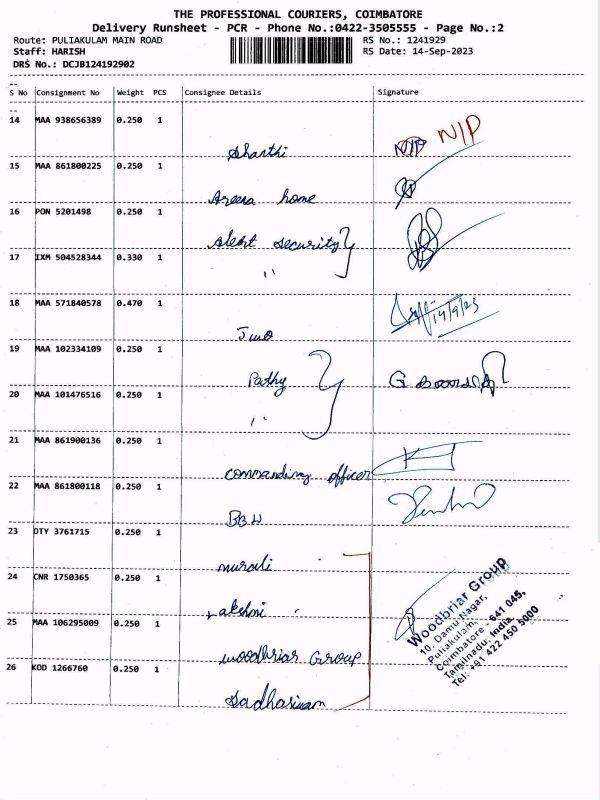 THE PROFESSIONAL COURIERS, COIMBATORE
Delivery Runsheet - PCR - Phone No.:0422-3505555 - Page No.:2
Route: PULIAKULAM MAIN ROAD
Staff: HARISH
DRS No.: DCJB124192902
RS No.: 1241929
RS Date: 14-Sep-2023
S No Consignment No Weight PCS Consignee Details Signature
14 MAA 938656389 0.250 1
Shanthi N/P N/P
15 MAA 861800225 0.250 1
Areena home
16 PON 5201498 0.250 1
Alert security
17 IXM 504528344 0.330 1
"
18 MAA 571840578 0.470 1
14/9/23
19 MAA 102334109 0.250 1
Pathy G
20 MAA 101476516 0.250 1
"
21 MAA 861900136 0.250 1
commanding officer
22 MAA 861800118 0.250 1
23 DTY 3761715 0.250 1
murali
24 CNR 1750365 0.250 1
Lakshmi
25 MAA 106295009 0.250 1
woodbriar Group
26 KOD 1266760 0.250 1
Sadhasivam
Woodbriar Group
10, Damu Nagar,
Puliakulam,
Coimbatore - 641 045,
Tamilnadu, India.
Tel: +91 422 450 5000